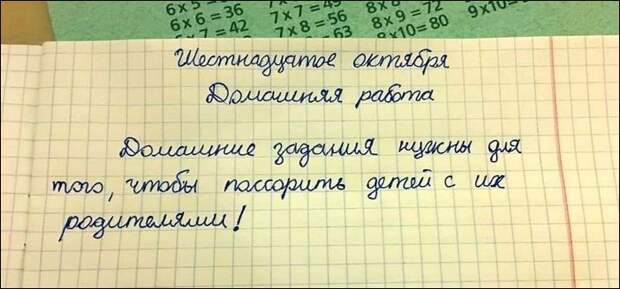 6 x 6 = 36 7 x 7 = 49 8 x 9 = 72 9x10=
7 = 42 7 x 8 = 56 8x10=80
= 63
Шестнадцатое октября
Домашняя работа
Домашние задания нужны для
того, чтобы поссорить детей с их
родителями!